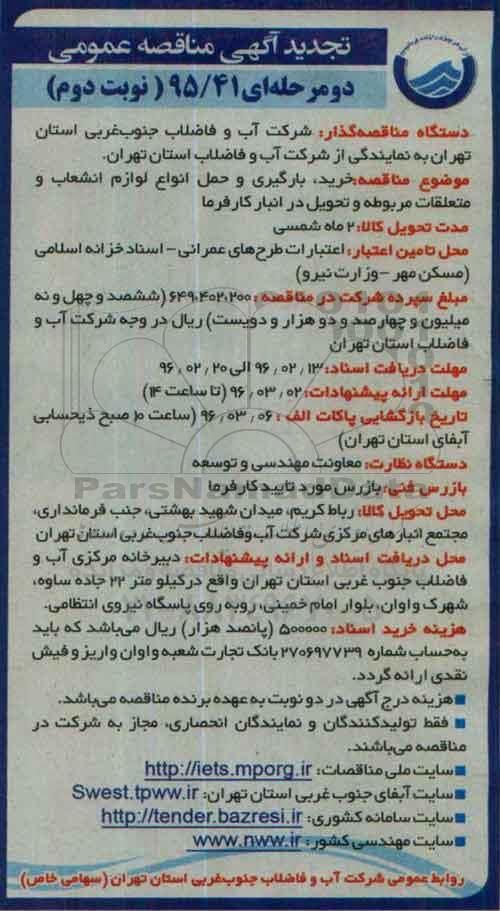 تجدید آگهی مناقصه عمومی
دومرحله‌ای ۹۵/۴۱ (نوبت دوم)
دستگاه مناقصه‌گذار: شرکت آب و فاضلاب جنوب‌غربی استان
تهران به نمایندگی از شرکت آب و فاضلاب استان تهران.
موضوع مناقصه: خرید، بارگیری و حمل انواع لوازم انشعاب و
متعلقات مربوطه و تحویل در انبار کارفرما
مدت تحویل کالا: ۲ ماه شمسی
محل تامین اعتبار: اعتبارات طرح‌های عمرانی – اسناد خزانه اسلامی
(مسکن مهر – وزارت نیرو)
مبلغ سپرده شرکت در مناقصه: ۶۴۹،۴۰۲،۲۰۰ (ششصد و چهل و نه
میلیون و چهارصد و دو هزار و دویست) ریال در وجه شرکت آب و
فاضلاب استان تهران
مهلت دریافت اسناد: ۹۶/۰۲/۱۳ الی ۹۶/۰۲/۲۰
مهلت ارائه پیشنهادات: ۹۶/۰۳/۰۲ (تا ساعت ۱۴)
تاریخ بازگشایی پاکات الف: ۹۶/۰۳/۰۶ (ساعت ۱۰ صبح ذیحسابی
آبفای استان تهران)
دستگاه نظارت: معاونت مهندسی و توسعه
بازرس فنی: بازرس مورد تایید کارفرما
ParsNamadData
محل تحویل کالا: رباط کریم، میدان شهید بهشتی، جنب فرمانداری،
مجتمع انبارهای مرکزی شرکت آب و فاضلاب جنوب‌غربی استان تهران
محل دریافت اسناد و ارائه پیشنهادات: دبیرخانه مرکزی آب و
فاضلاب جنوب غربی استان تهران واقع در کیلومتر ۲۲ جاده ساوه،
شهرک واوان، بلوار امام خمینی، روبه روی پاسگاه نیروی انتظامی.
هزینه خرید اسناد: ۵۰۰۰۰۰ (پانصد هزار) ریال می‌باشد که باید
به‌حساب شماره ۲۷۰۶۹۷۷۳۹ بانک تجارت شعبه واوان واریز و فیش
نقدی ارائه گردد.
■ هزینه درج آگهی در دو نوبت به عهده برنده مناقصه می‌باشد.
■ فقط تولیدکنندگان و نمایندگان انحصاری، مجاز به شرکت در
مناقصه می‌باشند.
■ سایت ملی مناقصات: http://iets.mporg.ir
■ سایت آبفای جنوب غربی استان تهران: Swest.tpww.ir
■ سایت سامانه کشوری: http://tender.bazresi.ir
■ سایت مهندسی کشور: www.nww.ir
روابط عمومی شرکت آب و فاضلاب جنوب‌غربی استان تهران (سهامی خاص)